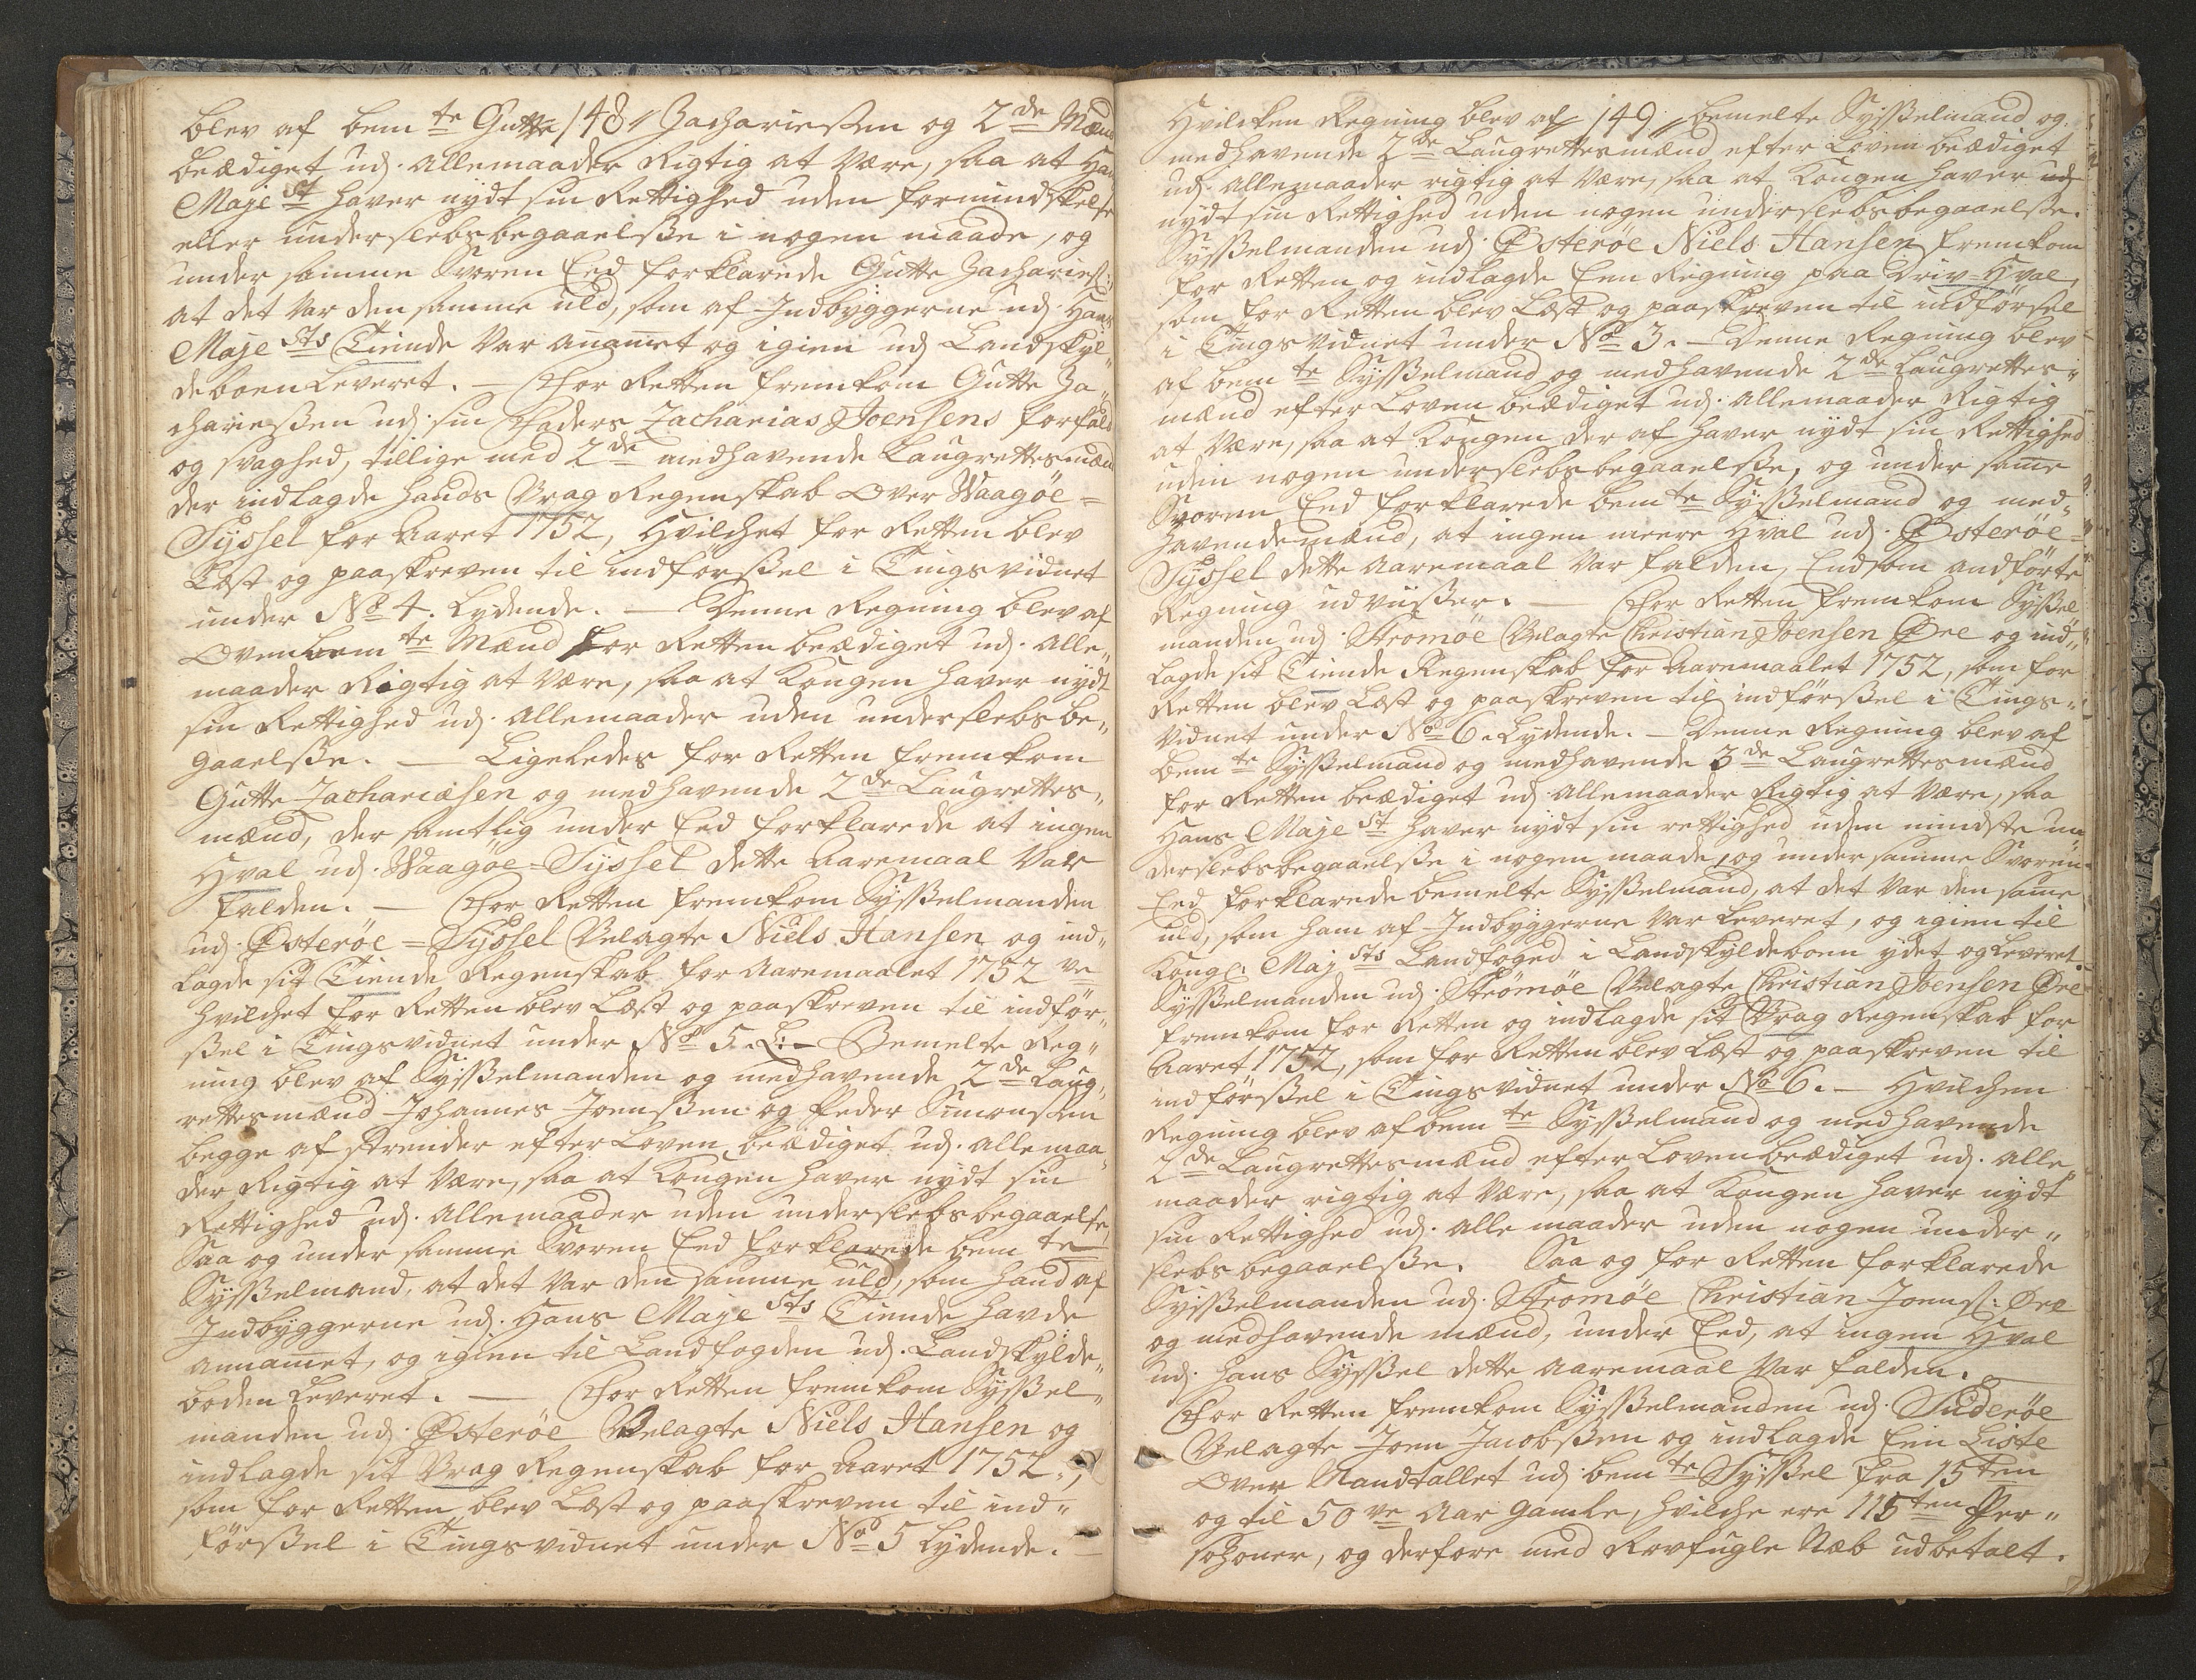 148
blev af bem te Gutte Zachariessen og 2de Mænd
beædiget udj allemaader Rigtig at være, saa at Hans
Maje st haver nydt sin Rettighed uden formindskelse
eller underslebsbegaaelsse i nogen maade, og
under samme Svoren Eed forklarede Gutte Zachariess:
at det var den samme uld, som af Indbyggerne udj Hans
Maje sts Tiende var anammet og igien udj Landskyl„
deboen Leveret. — For Retten fremkom Gutte Za„
chariessen udj sin Faders Zacharias Joensens forfald
og svaghed, tillige med 2de medhavende Laugrettesmænd
der indlagde hands Vrag Regenskab over Waagöe=
Syssel for Aaret 1752, Hvilchet for Retten blev
Læst og paaskreven til indförssel i Tingsvidnet
under No 4. Lydende. — Denne Regning blev af
Ovenbem te Mænd for Retten beædiget udj. alle„
maader Rigtig at være, saa at Kongen haver nydt
sin Rettighed udj. allemaader uden underslebsbe„
gaaelsse. — Ligeledes for Retten fremkom
Gutte Zachariæsen og medhavende 2de Laugrettes„
mænd, der samtlig under Eed forklarede at ingen
Hval udj. Waagöe=Syssel dette Aaremaal var
falden. — For Retten fremkom Sysselmanden
udj. Østeröe=Syssel Velagte Niels Hansen og ind„
lagde sit Tiende Regenskab for Aaremaalet 1752 ve
hvilchet for Retten blev Læst og paaskreven til indför„
ssel i Tingsvidnet under No 5. L: — Bemelte Reg„
ning blev af Sysselmanden og medhavende 2de Laug„
rettesmænd Johannes Joenssen og Peder Simonssen
begge af Strender efter Loven beædiget udj. allemaa„
der Rigtig at være, saa at Kongen haver nydt sin
Rettighed udj. allemaader uden underslebsbegaaelse,
Saa og under samme Svoren Eed forklarede bem te
Sysselmand, at det var den samme uld, som hand af
Indbyggerne udj. Hans Maje sts Tiende havde
annamet, og igien til Landfogden udj. Landskylde„
boden Leveret. — For Retten fremkom Syssel„
manden udj. Østeröe Velagte Niels Hansen og
indlagde sit Vrag Regenskab for Aaret 1752.,
som for Retten blev Læst og paaskreven til ind„
förssel i Tingsvidnet under No 5 Lydende. —
149
Hvilcken Regning blev af bemelte Sysselmand og
medhavende 2de Laugrettesmænd efter Loven beædiget
udj allemaader rigtig at være, saa at Kongen haver udj
nydt sin Rettighed uden nogen underslebsbegaaelsse.
Sysselmanden udj. Østeröe Niels Hansen fremkom
for Retten og indlagde Een Regning paa Driv=Hval,
som for Retten blev Læst og paaskreven til indförssel
i Tingsvidnet under No 3. — Denne Regning blev
af bem te Sysselmand og medhavende 2de Laugrettes„
mænd efter Loven beædiget udj. allemaader Rigtig
at være, saa at Kongen der af haver nydt sin Rettighed
uden nogen underslebsbegaaelsse, og under same
Svoren Eed forklarede bem te Sysselmand og med„
havende mænd, at ingen meere Hval udj. Østeröe=
Syssel dette Aaremaal var falden, End som andförte
Regning udviisser. — For Retten fremkom Syssel
manden udj. Stromöe Velagte Christian Joensen Øre og ind„
lagde sit Tiende Regenskab for Aaremaalet 1752, som for
Retten blev Læst og paaskreven til indförssel i Tings„
vidnet under No 6. Lydende. — Denne Regning blev af
bem te Sysselmand og medhavende 3de Laugrettesmænd
for Retten beædiget udj allemaader Rigtig at være, saa
Hans Maje st haver nydt sin rettighed uden mindste un„
derslebsbegaaelsse i nogen maade, og under samme Svoren
Eed forklarede bemelte Sysselmand, at det var den same
uld, som ham af Indbyggerne var Leveret, og igien til
Kongl. Maj sts Landfoged i Landskyldeboen ydet og Leveret.
Sysselmanden udj. Strömöe Velagte Christian Joensen Øre
fremkom for Retten og indlagde sit Vrag Regenskab for
Aaret 1752, som for Retten blev Læst og paaskreven til
indförssel i Tingsvidnet under No 6. — Hvilchen
Regning blev af bem te Sysselmand og medhavende
2de Laugrettesmænd efter Loven beædiget udj. alle„
maader rigtig at være, saa at Kongen haver nydt
sin Rettighed udj. alle maader uden nogen under„
slebs begaaelsse. Saa og for Retten forklarede
Sysselmanden udj. Stromöe Christian Joens: Øre
og medhavende mænd, under Eed, at ingen Hval
udj. hans Syssel dette Aaremaal var falden. —
For Retten fremkom Sysselmanden udj. Suderöe
Velagte Joen Jacobssen og indlagde Een Liste
over Mandtallet udj. bem te Syssel fra 15 ten
og til 50 ve Aar gamle, hvilche ere 115 ten Per„
sohner, og derfore med Rovfugle Næb udbetalt.